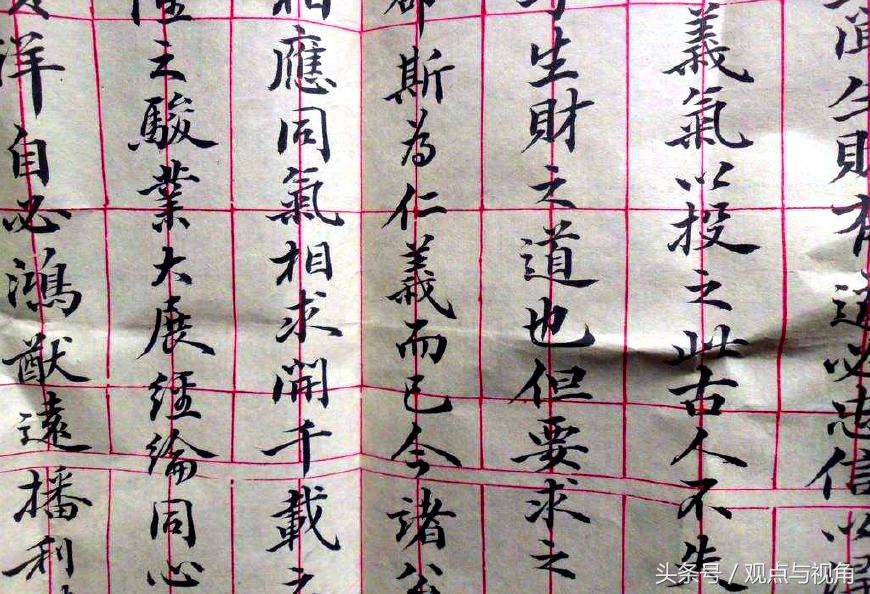 生財有道必忠信以
義氣以投之此古人不失
生財之道也但要求之
斯為仁義而已今諸公
相應同氣相求開千載之
之駿業大展經綸同心
洋自必鴻猷遠播利
头条号 / 观点与视角